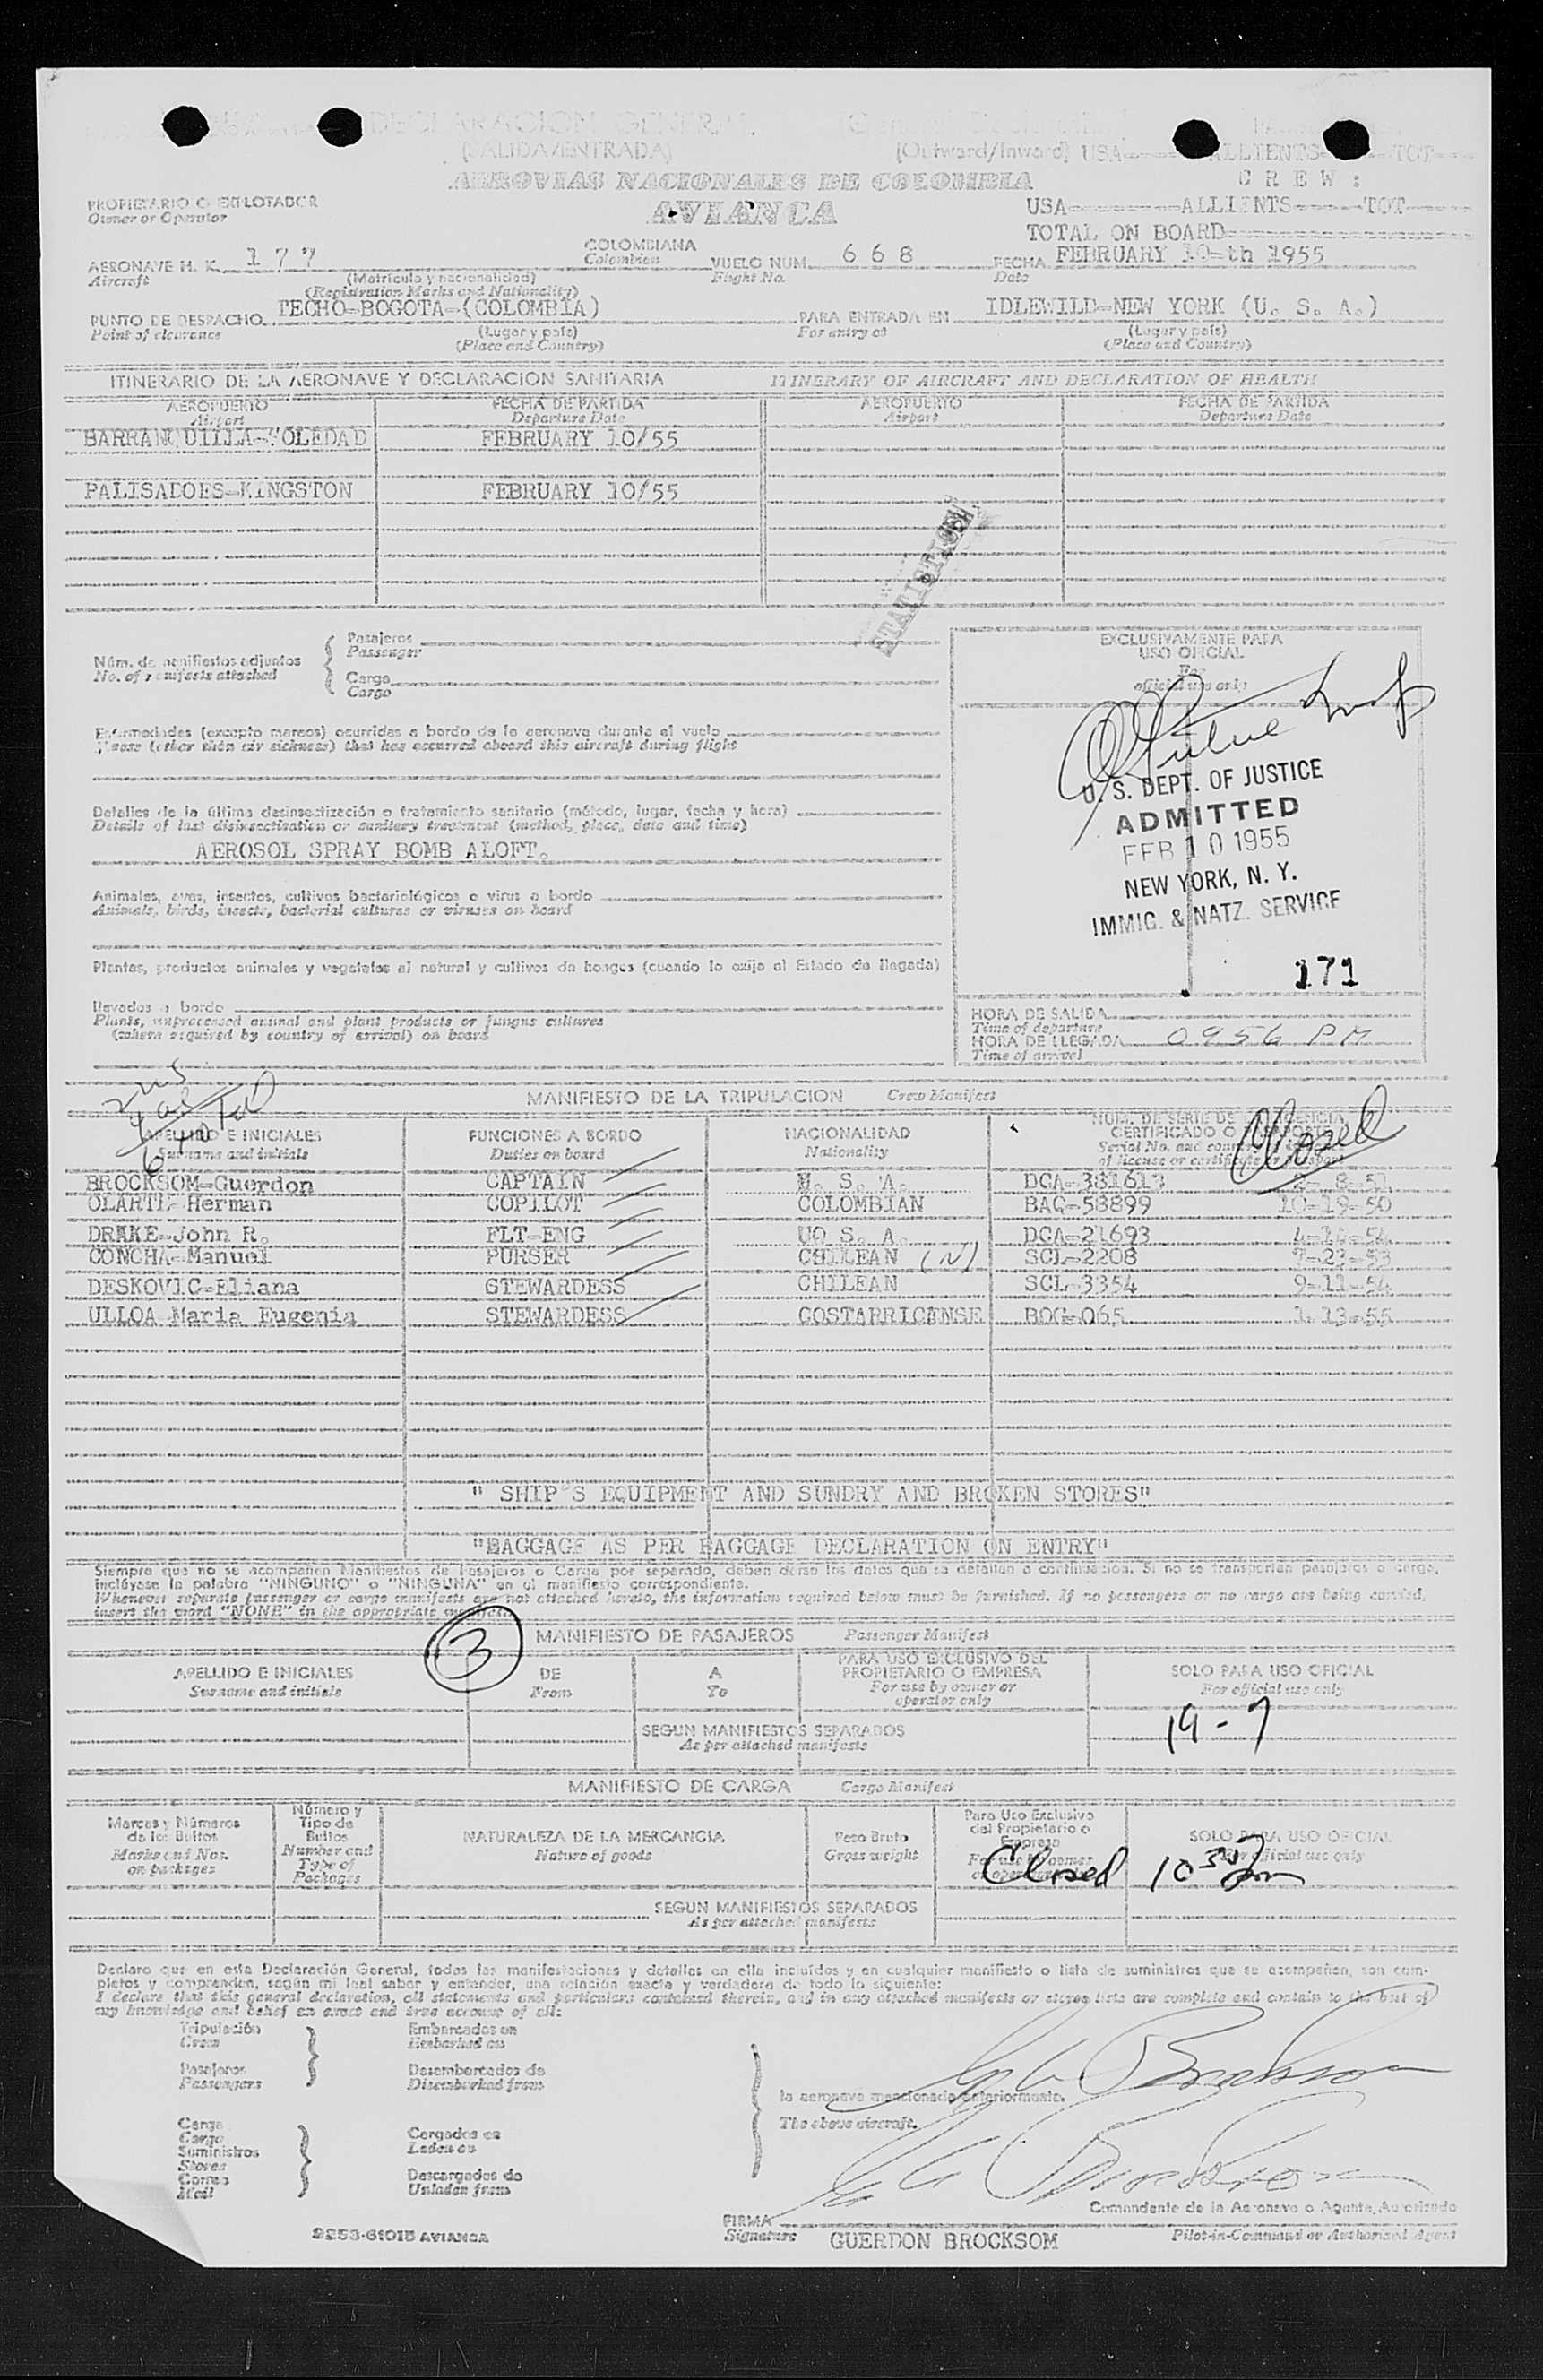 DECLARACION GENERAL
(SALIDA/ENTRADA) (Outward/Inward) USA ALLIENTS TOT
AEROVIAS NACIONALES DE COLOMBIA C R E W :
PROPIETARIO O EXPLOTADOR
Owner or Operator
AVIANCA USA ALLIENTS TOT
TOTAL ON BOARD
AERONAVE H. K. 1 7 7 COLOMBIANA VUELO NUM. 6 6 8 FECHA FEBRUARY 10-th 1955
Aircraft (Matrícula y nacionalidad) Colombian Flight No. Date
(Registration Marks and Nationality)
PUNTO DE DESPACHO TECHO-BOGOTA-(COLOMBIA) PARA ENTRADA EN IDLEWILD-NEW YORK (U. S. A.)
Point of clearance (Lugar y país) For entry at (Lugar y país)
(Place and Country) (Place and Country)
ITINERARIO DE LA AERONAVE Y DECLARACION SANITARIA ITINERARY OF AIRCRAFT AND DECLARATION OF HEALTH
AEROPUERTO FECHA DE PARTIDA AEROPUERTO FECHA DE PARTIDA
Airport Departure Date Airport Departure Date
BARRANQUILLA- FEBRUARY 10/55
PALISADOES-KINGSTON FEBRUARY 10/55
STATISTICS
Núm. de manifiestos adjuntos
No. of manifests attached
Pasajeros
Passenger
Carga
Cargo
EXCLUSIVAMENTE PARA
USO OFICIAL
For
official use only
Enfermedades (excepto mareos) ocurridas a bordo de la aeronave durante el vuelo
Illness (other than air sickness) that has occurred aboard this aircraft during flight
Detalles de la última desinsectización o tratamiento sanitario (método, lugar, fecha y hora)
Details of last disinsectisation or sanitary treatment (method, place, date and time)
AEROSOL SPRAY BOMB ALOFT.
U. S. DEPT. OF JUSTICE
ADMITTED
FEB 10 1955
NEW YORK, N. Y.
IMMIG. & NATZ. SERVICE
171
Animales, aves, insectos, cultivos bacteriológicos o virus a bordo
Animals, birds, insects, bacterial cultures or viruses on board
Plantas, productos animales y vegetales al natural y cultivos de hongos (cuando lo exija el Estado de llegada)
llevados a bordo
Plants, unprocessed animal and plant products or fungus cultures
(where required by country of arrival) on board
HORA DE SALIDA
Time of departure
HORA DE LLEGADA 0956 PM
Time of arrival
MANIFIESTO DE LA TRIPULACION Crew Manifest
6 total
Closed
APELLIDO E INICIALES FUNCIONES A BORDO NACIONALIDAD
Surname and initials Duties on board Nationality
BROCKSOM-Guerdon CAPTAIN U. S. A. DCA-381613
OLARTE-Herman COPILOT COLOMBIAN BAG-53899 10-19-50
DRAKE-John R. FLT-ENG UO S. A. DCA-21693
CONCHA-Manuel PURSER CHILEAN (N) SCL-2208 7-23-53
DESKOVIC-Eliana STEWARDESS CHILEAN SCL-3354 9-11-54
ULLOA Maria Eugenia STEWARDESS COSTARRICENSE BOG-065 1-13-55
" SHIP'S EQUIPMENT AND SUNDRY AND BROKEN STORES"
"BAGGAGE AS PER BAGGAGE DECLARATION ON ENTRY"
Siempre que no se acompañen Manifiestos de Pasajeros o Carga por separado, deben darse los datos que se detallan a continuación. Si no se transportan pasajeros o carga,
inclúyase la palabra "NINGUNO" o "NINGUNA" en el manifiesto correspondiente.
Whenever separate passenger or cargo manifests are not attached hereto, the information required below must be furnished. If no passengers or no cargo are being carried,
insert the word "NONE" in the appropriate manifest.
3 MANIFIESTO DE PASAJEROS Passenger Manifest
APELLIDO E INICIALES DE A PARA USO EXCLUSIVO DEL PROPIETARIO O EMPRESA SOLO PARA USO OFICIAL
Surname and initials From To For use by owner or operator only For official use only
SEGUN MANIFIESTOS SEPARADOS 19-7
As per attached manifests
MANIFIESTO DE CARGA Cargo Manifest
Marcas y Números de los Bultos Número y Tipo de Bultos NATURALEZA DE LA MERCANCIA Peso Bruto Para Uso Exclusivo del Propietario o Empresa SOLO PARA USO OFICIAL
Marks and Nos. on packages Number and Type of Packages Nature of goods Gross weight For official use only
Closed 10 30 pm
SEGUN MANIFIESTOS SEPARADOS
As per attached manifests
Declaro que en esta Declaración General, todas las manifestaciones y detalles en ella incluídos y en cualquier manifiesto o lista de suministros que se acompañen, son com-
pletos y comprenden, según mi leal saber y entender, una relación exacta y verdadera de todo lo siguiente:
I declare that this general declaration, all statements and particulars contained therein, and in any attached manifests or stores lists are complete and contain to the best of
my knowledge and belief an exact and true account of all:
Tripulación Embarcados en
Crew Embarked on
Pasajeros Desembarcados de
Passengers Disembarked from
la aeronave mencionada anteriormente.
The above aircraft.
Carga
Cargo Cargados en
Suministros Laden on
Stores
Correo Descargados de
Mail Unladen from
Comandante de la Aeronave o Agente Autorizado
FIRMA
Signature GUERDON BROCKSOM Pilot-in-Command or Authorized Agent
9253-61015 AVIANCA